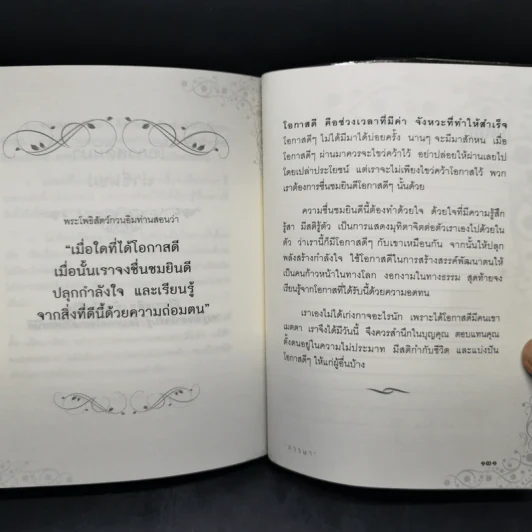 พระโพธิสัตว์กวนอิมท่านสอนว่า
“เมื่อใดที่ได้โอกาสดี
เมื่อนั้นเราจงชื่นชมยินดี
ปลุกกำลังใจ และเรียนรู้
จากสิ่งที่ดีนี้ด้วยความถ่อมตน”
โอกาสดี คือช่วงเวลาที่มีค่า จังหวะที่ทำให้สำเร็จ
โอกาสดีๆ ไม่ได้มีมาได้บ่อยครั้ง นานๆ จะมีมาสักหน เมื่อ
โอกาสดีๆ ผ่านมาควรจะไขว่คว้าไว้ อย่าปล่อยให้ผ่านเลยไป
โดยเปล่าประโยชน์ แต่เราจะไม่เพียงไขว่คว้าโอกาสไว้ พวก
เราต้องการชื่นชมยินดีโอกาสดีๆ นั้นด้วย
ความชื่นชมยินดีนี้ต้องทำด้วยใจ ด้วยใจที่มีความรู้สึก
รู้สา มีสติรู้ตัว เป็นการแสดงมุทิตาจิตต่อตัวเราเองไปด้วยใน
ตัว ว่าเรานี้ก็มีโอกาสดีๆ กับเขาเหมือนกัน จากนั้นให้ปลุก
พลังสร้างกำลังใจ ใช้โอกาสดีในการสร้างสรรค์พัฒนาตนให้
เป็นคนก้าวหน้าในทางโลก งอกงามในทางธรรม สุดท้ายจง
เรียนรู้จากโอกาสที่ได้รับนี้ด้วยความอดทน
เราเองไม่ได้เก่งกาจอะไรนัก เพราะได้โอกาสดีมีคนเขา
เมตตา เราจึงได้มีวันนี้ จึงควรสำนึกในบุญคุณ ตอบแทนคุณ
ตั้งตนอยู่ในความไม่ประมาท มีสติกำกับชีวิต และแบ่งปัน
โอกาสดีๆ ให้แก่ผู้อื่นบ้าง